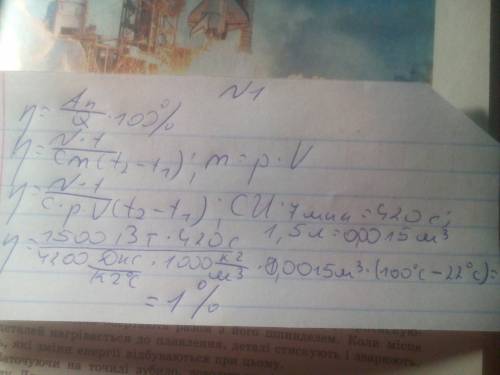 N1
η = Aп/Q · 100%
η = N·t/cm(t₂-t₁) ; m = ρ·V
η = N·t/c·ρ·V(t₂-t₁) ; СИ: 7 мин = 420 с;
1,5 л = 0,0015 м³
η = 1500 Вт · 420 с/4200 Дж/кг°С · 1000 кг/м³ · 0,0015 м³ · (100°с - 22°с) =
= 1%
деталей нагрівається до плавлення, деталі стискують і зварюють.
які зміни енергії відбуваються при цьому.